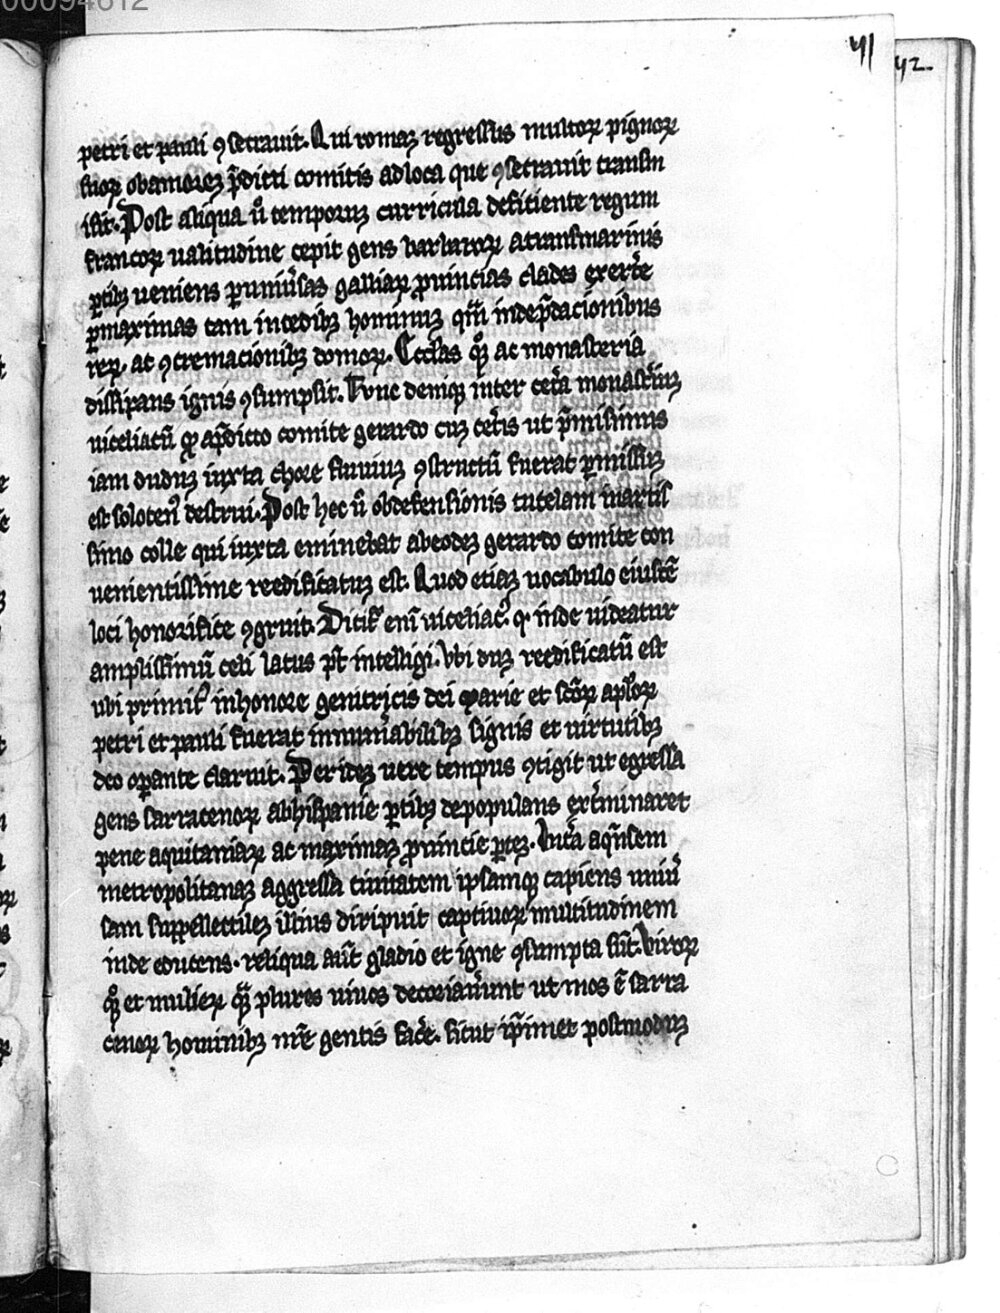 00094612
41
42.
petri et pauli ꝯsecrauit. Qui romaꝫ regressus multoꝝ pignoꝝ
suoꝝ ob amoreꝫ p̄dicti comitis ad loca que ꝯsecrauit transm
isit. Post aliqua u̾o temporuꝫ curricula deficiente regum
francoꝝ ualitudine cepit gens barbaroꝝ a transmarinis
ꝑtibꝫ ueniens ꝑ uniu̾sas galliaꝝ ꝓuincias clades exerc̾e
ꝑmaximas tam in cedibꝫ hominuꝫ qm̄ in dep̄dacionibus
reꝝ. ac ꝯcremacionibꝫ domoꝝ. Ecclas qꝫ ac monasteria
dissipans ignis ꝯsumpsit. Tunc deniqꝫ inter cet̾a monast̾iuꝫ
uiceliacū qꝫ a p̄dicto comite gerardo cuꝫ cet̾is ut p̄misimus
iam duduꝫ iuxta chore fluuiuꝫ ꝯstructū fuerat ꝑmissuꝫ
est solotenꝰ destrui. Post hec u̾o ob defensionis tutelam in artis
simo colle qui iuxta eminebat ab eodeꝫ gerardo comite con
uenientissime reedificatuꝫ est. Quod etiaꝫ uocabulo eiusdē
loci honorifice ꝯgruit. Dicit᷑ eni̅ uiceliacꝰ. qꝫ inde uideatur
amplissimū celi latus pt̄ intelligi. Vbi duꝫ reedificatū est
ubi primitꝰ in honore genitricis dei marie et sc̄oꝝ apl̄oꝝ
petri et pauli fuerat innum̾abilibꝫ signis et uirtutibꝫ
deo oꝑante claruit. Per ideꝫ uere tempus ꝯtigit ut egressa
gens sarracenoꝝ ab hispanie ꝑtibꝫ depopulans ext̾minaret
pene aquitaniaꝫ ac maximaꝫ ꝓuincie ꝑteꝫ. Int̾a aqn̄sem
metropolitanaꝫ aggressa ciuitatem ipsamqꝫ capiens uniu̾
sam suppellectileꝫ illius diripuit captiuoꝝ multitudinem
inde educens. reliqua aūt gladio et igne ꝯsumpta sūt. Viroꝝ
qꝫ et mulieꝝ qꝫ plures uiuos decoriau̾unt ut mos ē sarra
cenoꝝ hominibꝫ nr̄e gentis fac̾e. sicut ip̄imet postmoduꝫ